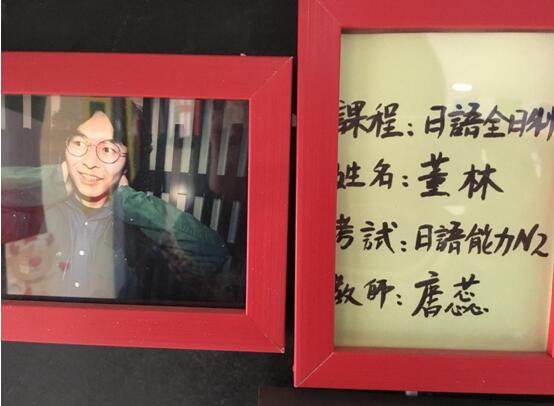 課程：日語全日制
姓名：董林
考試：日語能力N2
教師：唐蕊